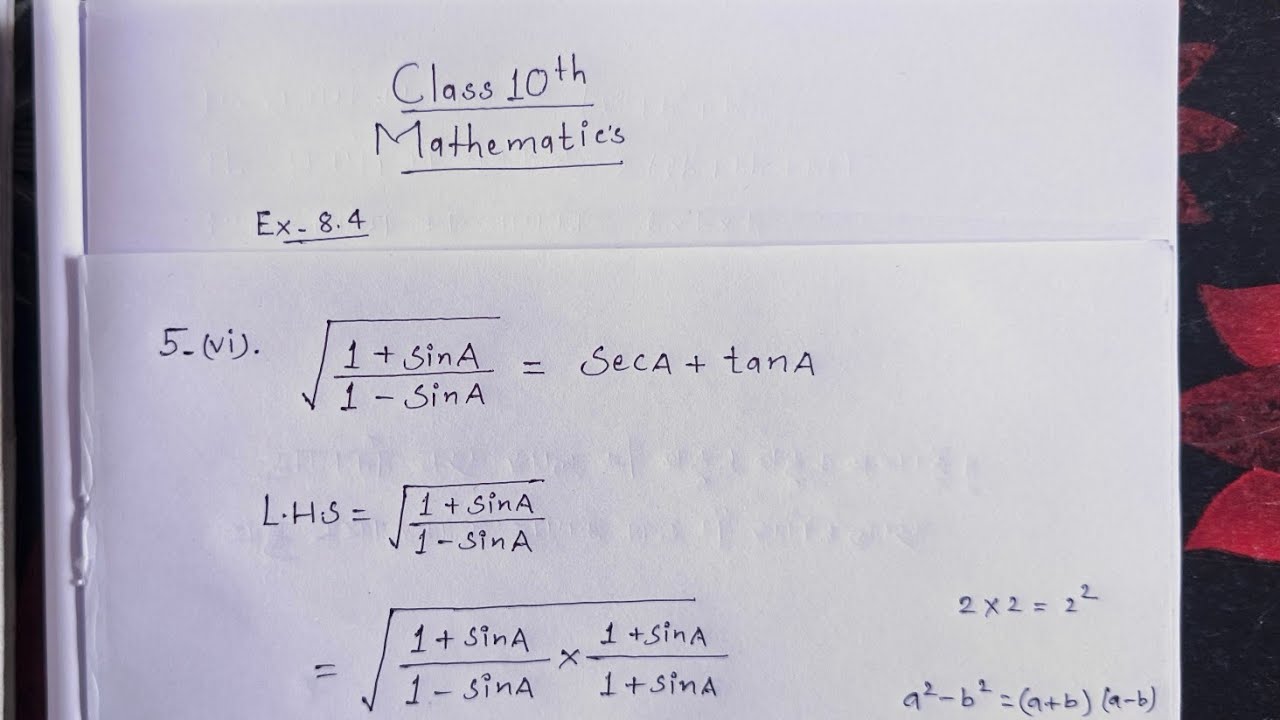 Class 10th
Mathematic's
Ex- 8.4
5-(vi). √((1 + sinA)/(1 - sinA)) = SecA + tanA
L.H.S = √((1 + sinA)/(1 - sinA))
= √((1 + sinA)/(1 - sinA) × (1 + sinA)/(1 + sinA))
2 × 2 = 2²
a² - b² = (a+b) (a-b)